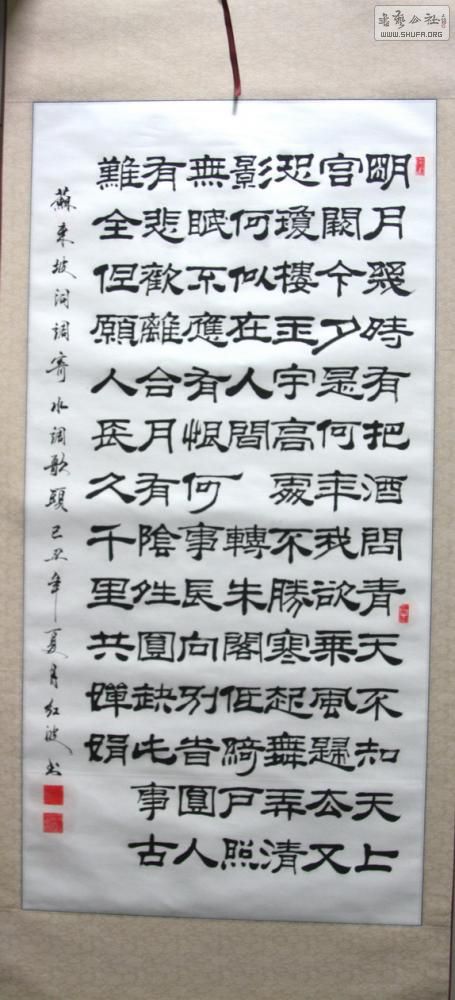 書藝公社
WWW.SHUFA.ORG
明月幾時有把酒問青天不知天上
宮闕今夕是何年我欲乘風歸去又
恐瓊樓玉宇高處不勝寒起舞弄清
影何似在人間轉朱閣低綺戶照
無眠不應有恨何事長向別旹圓人
有悲歡離合月有陰夝圓缺此事古
難全但願人長久千里共嬋娟
蘇東坡詞調寄水調歌頭己丑年夏月红波书